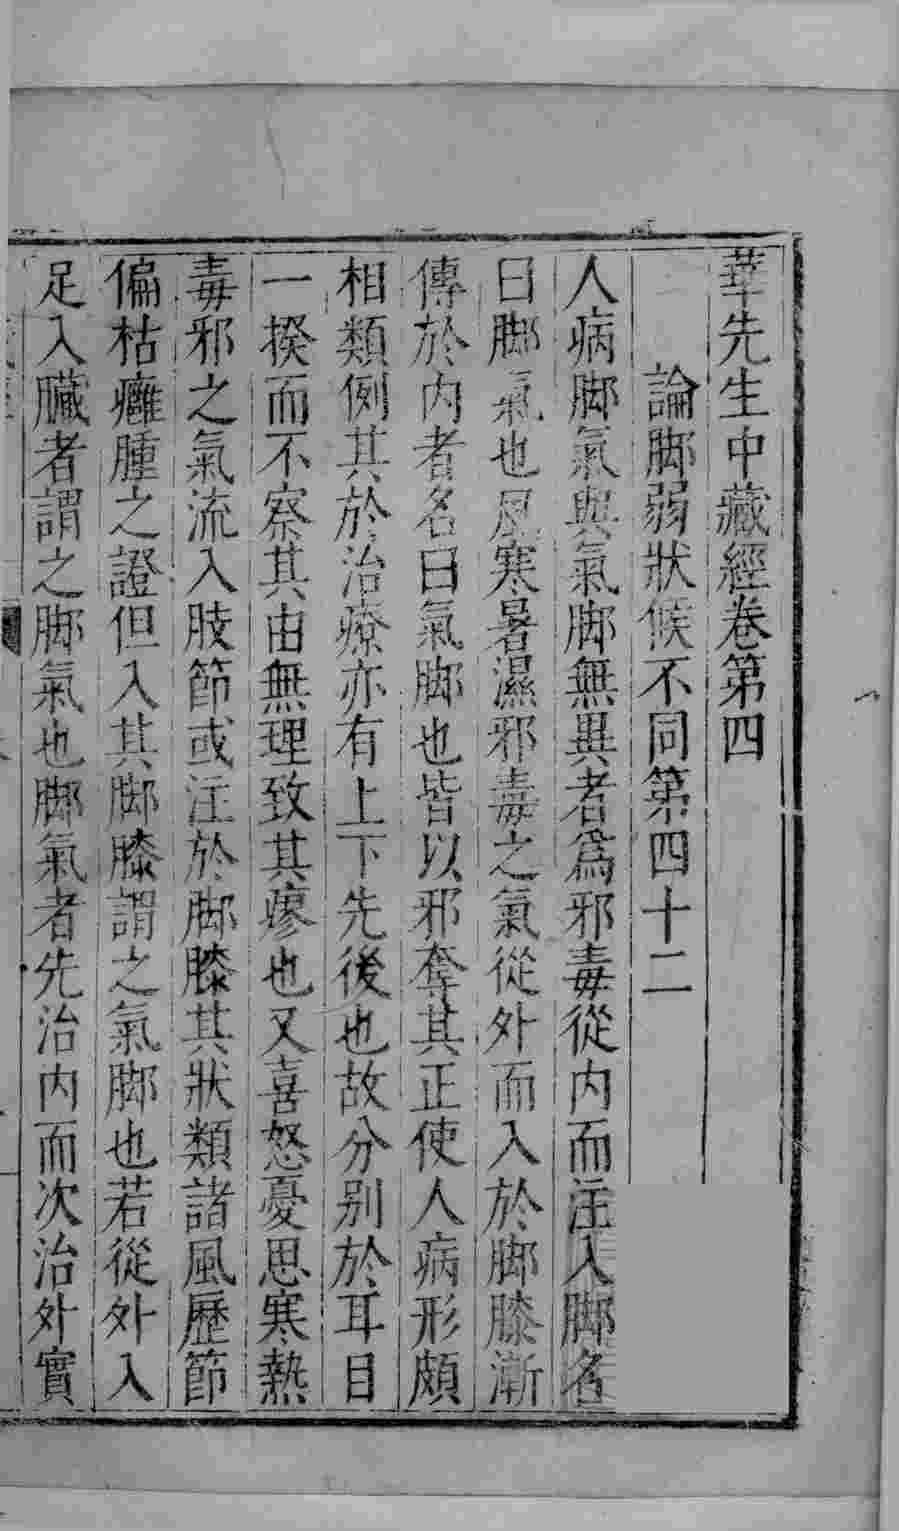 華先生中藏經卷第四
論脚弱狀候不同第四十二
人病脚氣與氣脚無異者爲邪毒從内而注入脚名
曰脚氣也風寒暑濕邪毒之氣從外而入於脚膝漸
傳於内者名曰氣脚也皆以邪奪其正使人病形頗
相類例其於治療亦有上下先後也故分别於耳目
一揆而不察其由無理致其瘳也又喜怒憂思寒熱
毒邪之氣流入肢節或注於脚膝其狀類諸風歷節
偏枯癰腫之證但入其脚膝謂之氣脚也若從外入
足入臟者謂之脚氣也脚氣者先治内而次治外實